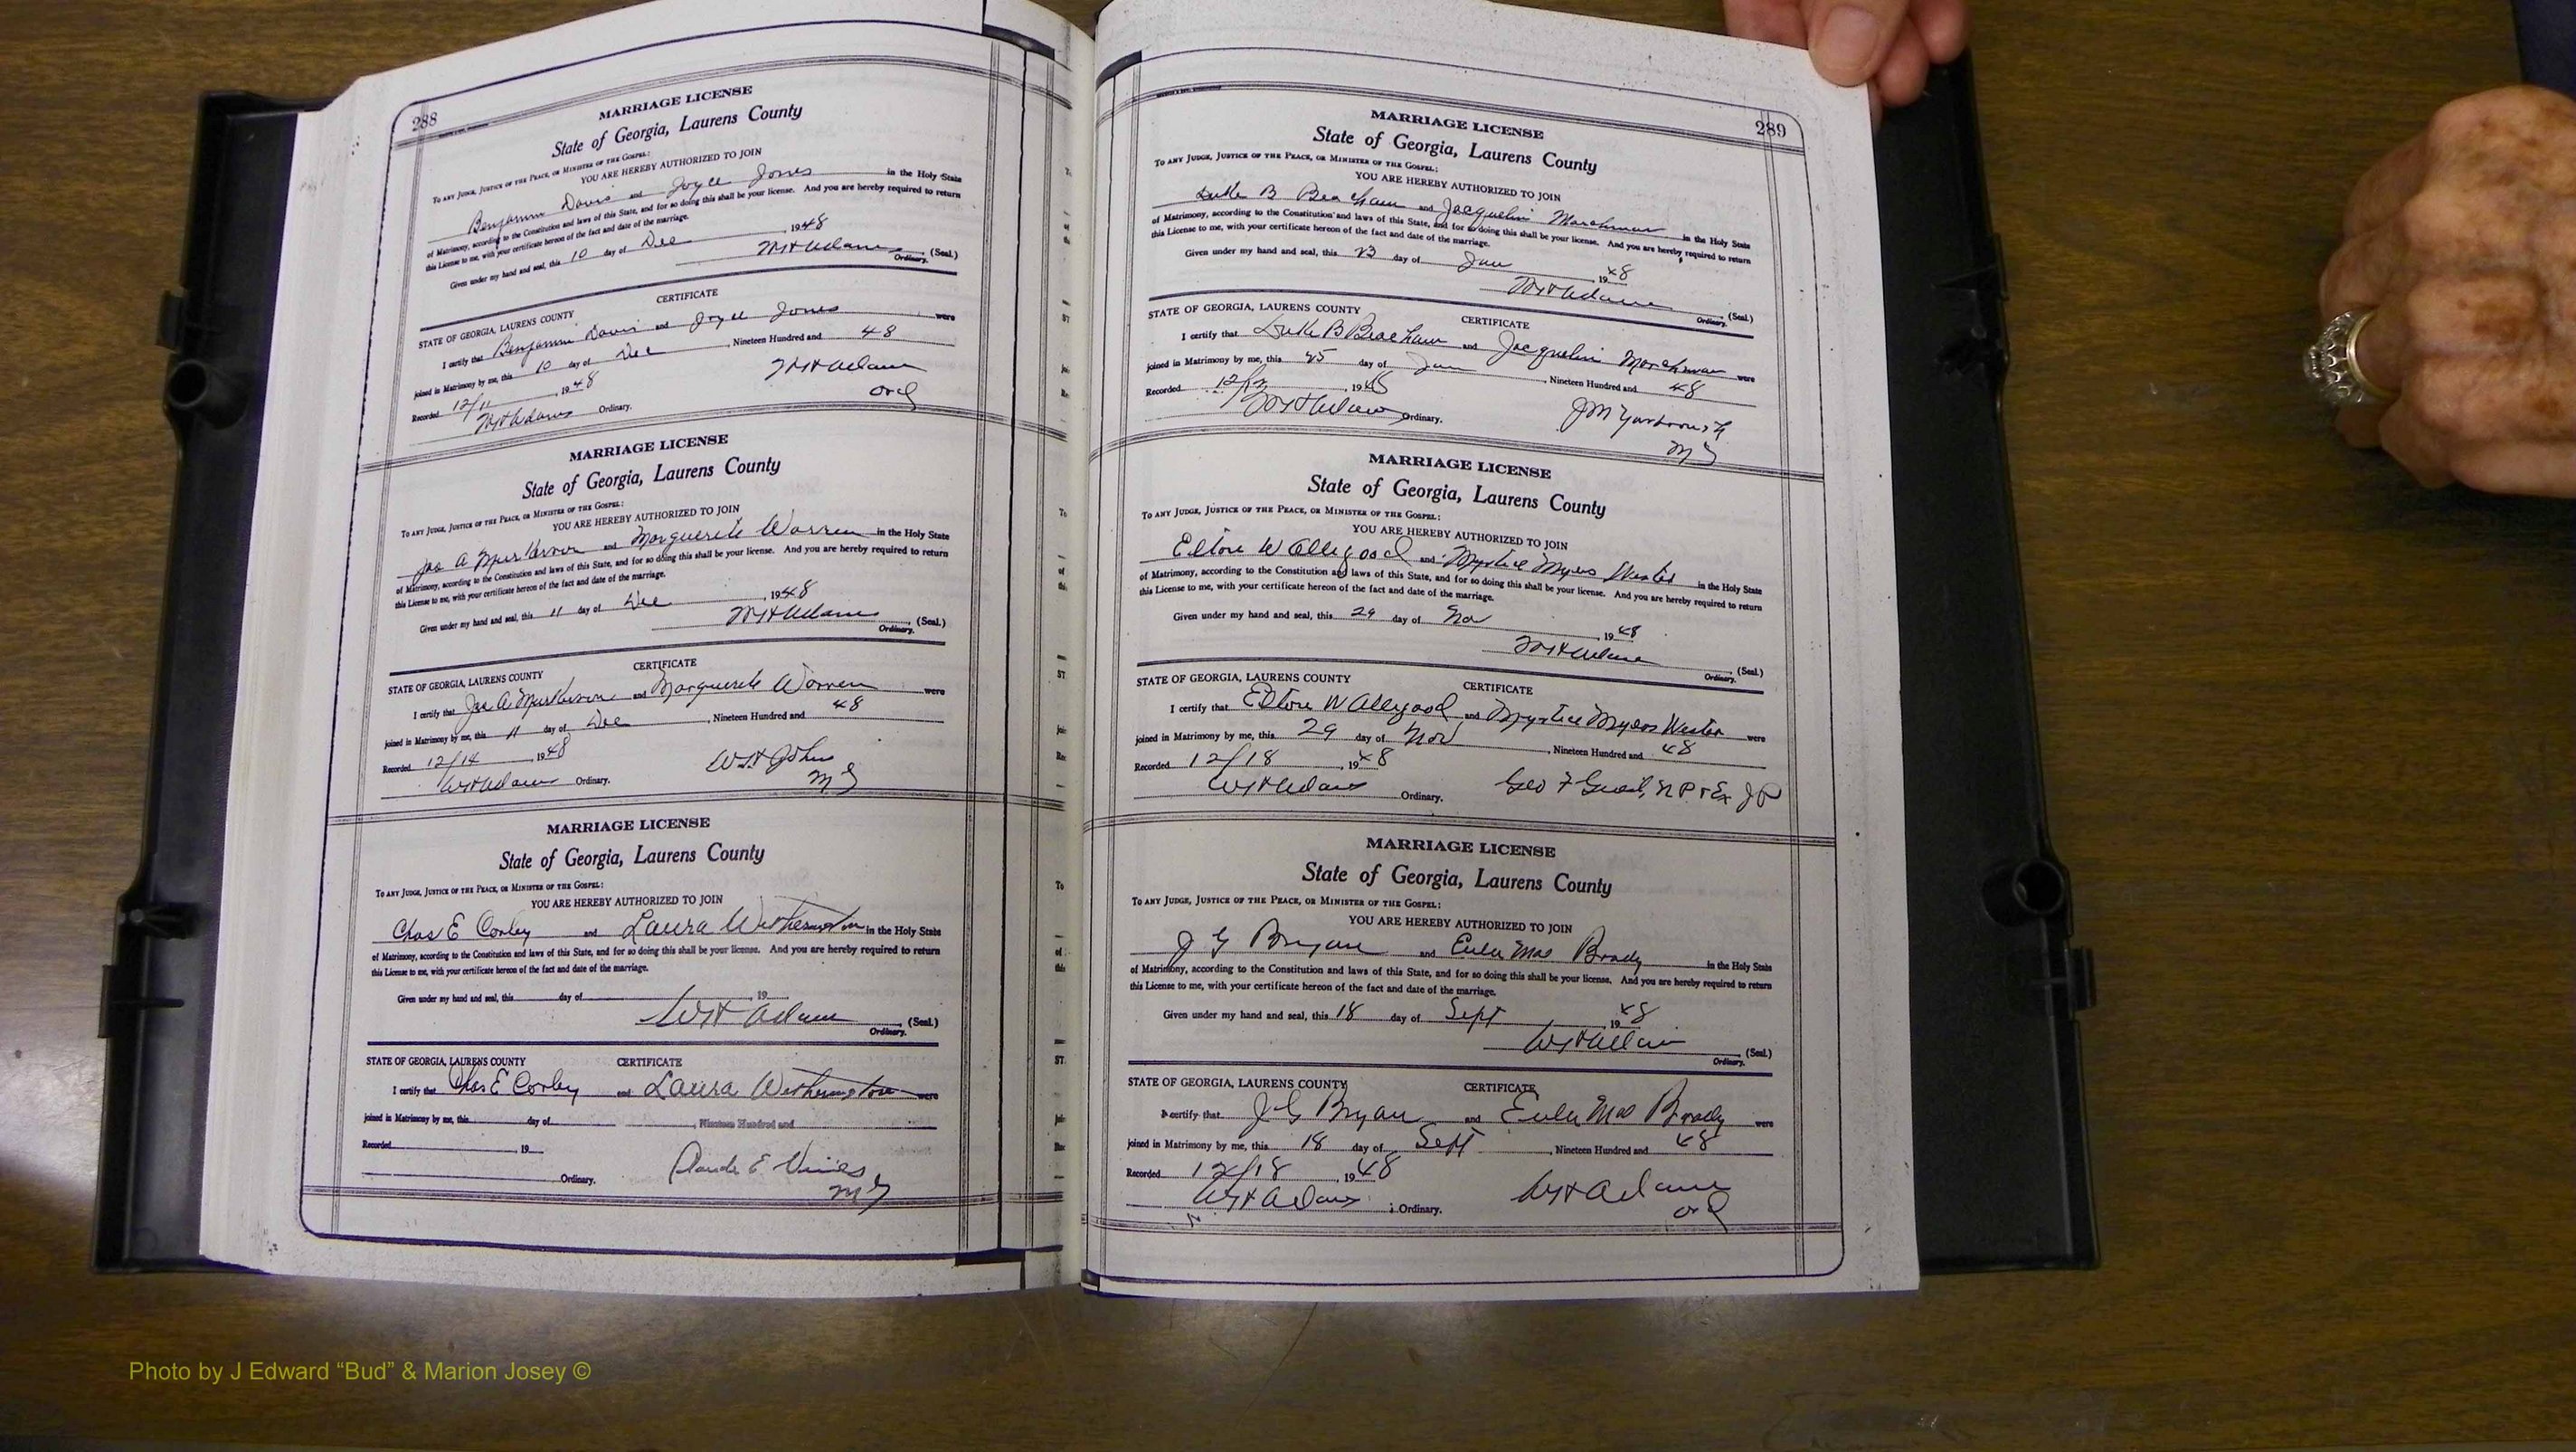 288
MARRIAGE LICENSE
State of Georgia, Laurens County
To ANY JUDGE, JUSTICE OF THE PEACE, OR MINISTER OF THE GOSPEL:
YOU ARE HEREBY AUTHORIZED TO JOIN
Benjamin Davis and Joyce Jones in the Holy State
of Matrimony, according to the Constitution and laws of this State, and for so doing this shall be your license. And you are hereby required to return
this License to me, with your certificate hereon of the fact and date of the marriage.
Given under my hand and seal, this 10 day of Dec 1948
WH Adams (Seal.)
Ordinary.
CERTIFICATE
STATE OF GEORGIA, LAURENS COUNTY
I certify that Benjamin Davis and Joyce Jones were
joined in Matrimony by me, this 10 day of Dec, Nineteen Hundred and 48
Recorded 12/11, 1948
WH Adams
Ord
WH Adams Ordinary.
MARRIAGE LICENSE
State of Georgia, Laurens County
To ANY JUDGE, JUSTICE OF THE PEACE, OR MINISTER OF THE GOSPEL:
YOU ARE HEREBY AUTHORIZED TO JOIN
A and Marguerite Warren in the Holy State
of Matrimony, according to the Constitution and laws of this State, and for so doing this shall be your license. And you are hereby required to return
this License to me, with your certificate hereon of the fact and date of the marriage.
Given under my hand and seal, this 11 day of Dec, 1948
WH Adams (Seal.)
Ordinary.
CERTIFICATE
STATE OF GEORGIA, LAURENS COUNTY
I certify that A and Marguerite Warren were
joined in Matrimony by me, this 11 day of Dec, Nineteen Hundred and 48
Recorded 12/14, 1948
WH Johns
MG
WH Adams Ordinary.
MARRIAGE LICENSE
State of Georgia, Laurens County
To ANY JUDGE, JUSTICE OF THE PEACE, OR MINISTER OF THE GOSPEL:
YOU ARE HEREBY AUTHORIZED TO JOIN
Chas E Corley and Laura Witherington in the Holy State
of Matrimony, according to the Constitution and laws of this State, and for so doing this shall be your license. And you are hereby required to return
this License to me, with your certificate hereon of the fact and date of the marriage.
Given under my hand and seal, this day of, 19
WH Adams (Seal.)
Ordinary.
STATE OF GEORGIA, LAURENS COUNTY CERTIFICATE
I certify that Chas E Corley and Laura Witherington were
joined in Matrimony by me, this day of, Nineteen Hundred and
Recorded, 19
Claude E Vines
MG
Ordinary.
289
MARRIAGE LICENSE
State of Georgia, Laurens County
To ANY JUDGE, JUSTICE OF THE PEACE, OR MINISTER OF THE GOSPEL:
YOU ARE HEREBY AUTHORIZED TO JOIN
Luke B Beacham and Jacquelin Marchman in the Holy State
of Matrimony, according to the Constitution and laws of this State, and for so doing this shall be your license. And you are hereby required to return
this License to me, with your certificate hereon of the fact and date of the marriage.
Given under my hand and seal, this 23 day of Jan, 1948
WH Adams (Seal.)
Ordinary.
STATE OF GEORGIA, LAURENS COUNTY CERTIFICATE
I certify that Luke B Beacham and Jacquelin Marchman were
joined in Matrimony by me, this 25 day of Jan, Nineteen Hundred and 48
Recorded, 1948
JM Yarbrough
MG
WH Adams Ordinary.
MARRIAGE LICENSE
State of Georgia, Laurens County
To ANY JUDGE, JUSTICE OF THE PEACE, OR MINISTER OF THE GOSPEL:
YOU ARE HEREBY AUTHORIZED TO JOIN
Elton W Allegood and Myrtice Myers Wester in the Holy State
of Matrimony, according to the Constitution and laws of this State, and for so doing this shall be your license. And you are hereby required to return
this License to me, with your certificate hereon of the fact and date of the marriage.
Given under my hand and seal, this 29 day of Nov, 1948
WH Adams (Seal.)
Ordinary.
STATE OF GEORGIA, LAURENS COUNTY CERTIFICATE
I certify that Elton W Allegood and Myrtice Myers Wester were
joined in Matrimony by me, this 29 day of Nov, Nineteen Hundred and 48
Recorded 12/18, 1948
Geo F N.P. & Ex JP
WH Adams Ordinary.
MARRIAGE LICENSE
State of Georgia, Laurens County
To ANY JUDGE, JUSTICE OF THE PEACE, OR MINISTER OF THE GOSPEL:
YOU ARE HEREBY AUTHORIZED TO JOIN
J G Bryan and Eula Mae Brady in the Holy State
of Matrimony, according to the Constitution and laws of this State, and for so doing this shall be your license. And you are hereby required to return
this License to me, with your certificate hereon of the fact and date of the marriage.
Given under my hand and seal, this 18 day of Sept, 1948
WH Adams (Seal.)
Ordinary.
STATE OF GEORGIA, LAURENS COUNTY CERTIFICATE
I certify that J G Bryan and Eula Mae Brady were
joined in Matrimony by me, this 18 day of Sept, Nineteen Hundred and 48
Recorded 12/18, 1948
WH Adams
Ord
WH Adams Ordinary.
Photo by J Edward “Bud” & Marion Josey ©